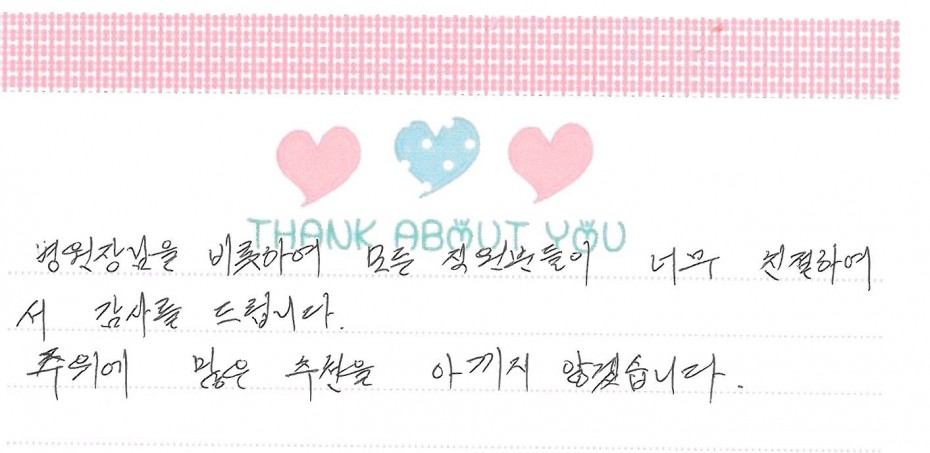 THANK ABOUT YOU
병원장님을 비롯하여 모든 직원분들이 너무 친절하여
서 감사를 드립니다.
주위에 많은 추천을 아끼지 않겠습니다.